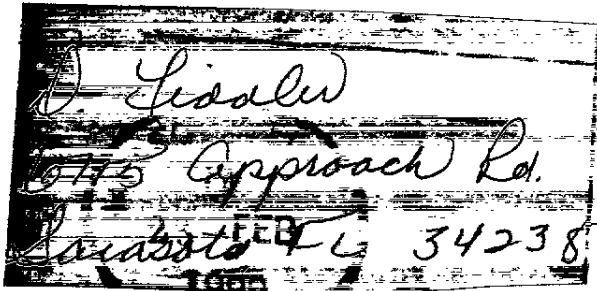 D. Fiddler
6115 Approach Rd.
Sarasota FL 34238
FEB